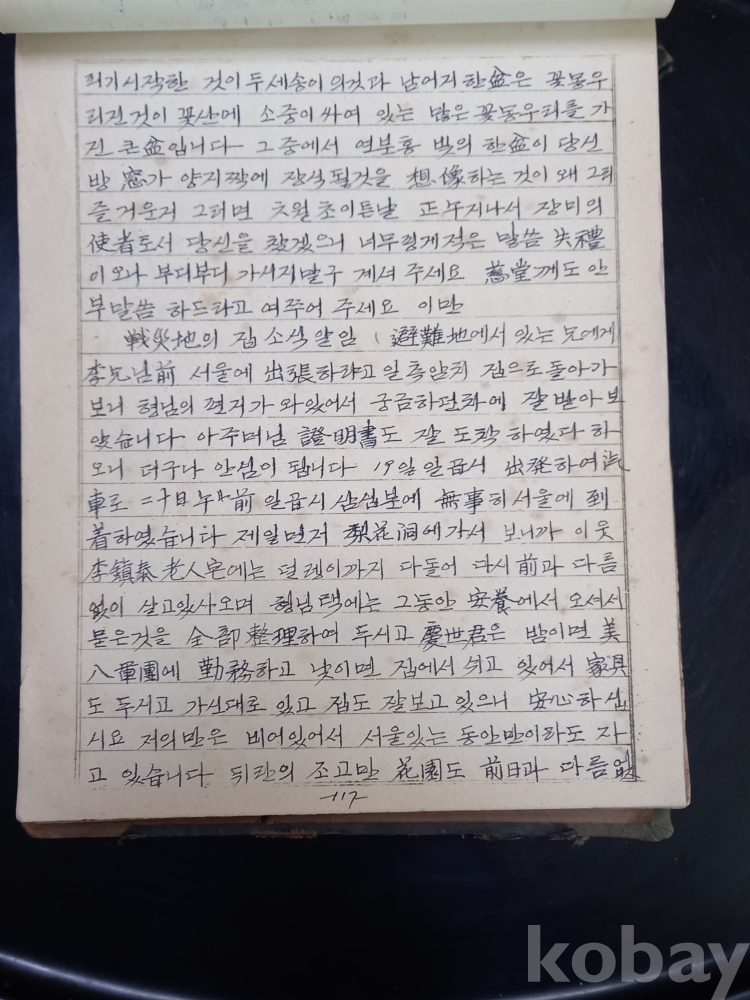 피기시작한 것이 두세송이의것과 남어지 한盆은 꽃봉우
리진것이 꽃산에 소중이 싸여 있는 많은 꽃봉우리를 가
진 큰盆입니다 그중에서 연분홍 빛의 한盆이 당신
방 窓가 양지짝에 장식될것을 想像하는 것이 왜 그리
즐거운지 그러면 六월초이튼날 正午지나서 장미의
使者로서 당신을 찾겠으니 너무렇게적은 말씀 失禮
이오나 부디부디 가시지말구 계셔 주세요 慈堂께도 안
부말씀 하드라고 여쭈어 주세요 이만
戰災地의 집 소식 알일 (避難地에서 있는 兄에게
李兄님前 서울에 出張하라고 일흑암치 집으로 돌아가
보니 형님의 편지가 와있어서 궁금하던차에 잘 받아 보
았습니다 아주머님 證明書도 잘 도착 하였다 하
오니 더구나 안심이 됩니다 19일 일곱시 出発하여 汽
車로 二十日午前 일곱시 삼십분에 無事히 서울에 到
着하였습니다 제일먼저 梨花洞에 가서 보니까 이웃
李鎭泰老人宅에는 덜렝이까지 다돌어 다시 前과 다름
없이 살고있사오며 형님택에는 그동안 安養에서 오셔서
묻은것을 全部 整理하여 두시고 慶世君은 밤이면 美
八軍團에 勤務하고 낮이면 집에서 쉬고 있어서 家具
도 두시고 가신대로 있고 집도 잘보고 있으니 安心하십
시요 저의만은 비어있어서 서울있는 동안만이라도 자
고 있습니다 뒤란의 조고만 花園도 前日과 다름없
-117-
kobay